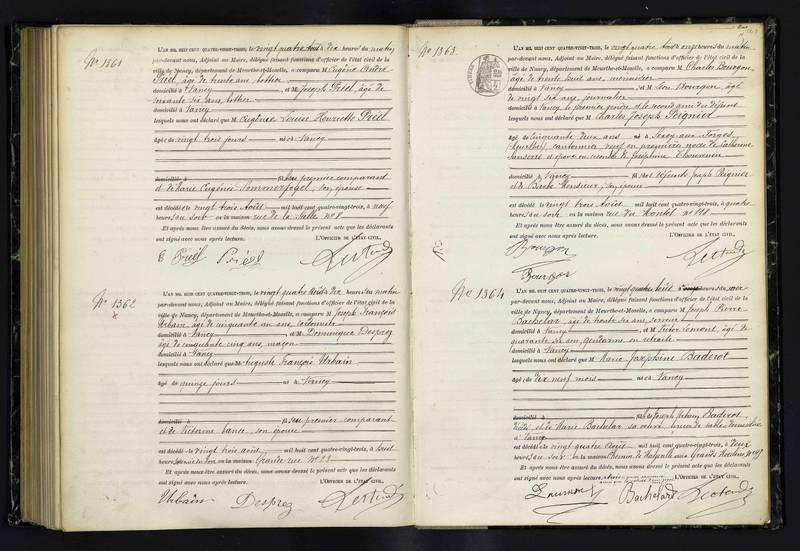 No 1361
L'AN MIL HUIT CENT QUATRE-VINGT-TROIS, le vingt quatre Août à dix heures du matin
par-devant nous, Adjoint au Maire, délégué faisant fonctions d'officier de l'état civil de la
ville de Nancy, département de Meurthe-et-Moselle, a comparu M. Eugène André
Priël, âgé de trente ans, bottier
domicilié à Nancy, et M. Joseph Priël, âgé de
soixante six ans, bottier
domicilié à Nancy
lesquels nous ont déclaré que M. Eugénie Louise Henriette Priël
âgée de vingt trois jours née à Nancy
domicilié à fille du premier comparant
et de Marie Eugénie Sommerfogel, son épouse
est décédée le vingt trois Août mil huit cent quatre-vingt-trois, à neuf
heures du soir en la maison rue de la Salle No 8
Et après nous être assuré du décès, nous avons dressé le présent acte que les déclarants
ont signé avec nous après lecture. L'OFFICIER DE L'ÉTAT CIVIL,
E Priël Priël
No 1362
L'AN MIL HUIT CENT QUATRE-VINGT-TROIS, le vingt quatre Août à dix heures du matin
par-devant nous, Adjoint au Maire, délégué faisant fonctions d'officier de l'état civil de la
ville de Nancy, département de Meurthe-et-Moselle, a comparu M. Joseph François
Urbain, âgé de cinquante un ans, cordonnier
domicilié à Nancy, et M. Dominique Desprez
âgé de cinquante cinq ans, maçon
domicilié à Nancy
lesquels nous ont déclaré que M. Auguste François Urbain
âgé de quinze jours né à Nancy
domicilié à fils du premier comparant
et de son épouse
est décédé le vingt trois août mil huit cent quatre-vingt-trois, à huit
heures du soir en la maison Grande rue No 23
Et après nous être assuré du décès, nous avons dressé le présent acte que les déclarants
ont signé avec nous après lecture. L'OFFICIER DE L'ÉTAT CIVIL,
Urbain Desprez
No 1363
L'AN MIL HUIT CENT QUATRE-VINGT-TROIS, le vingt quatre Août à onze heures du matin
par-devant nous, Adjoint au Maire, délégué faisant fonctions d'officier de l'état civil de la
ville de Nancy, département de Meurthe-et-Moselle, a comparu M. Charles Bourgon
âgé de trente huit ans, menuisier
domicilié à Nancy, et M. Léon Bourgon, âgé
de vingt six ans, journalier
domicilié à Nancy, le premier gendre et le second ami du défunt
lesquels nous ont déclaré que M. Charles Joseph Peignier
âgé de cinquante deux ans né à Sexey aux Forges
(Meurthe), cantonnier, veuf en premières noces de Catherine
et époux en secondes de Joséphine Thouvenin
domicilié à Nancy fils des défunts Joseph Peignier
et de Barbe, son épouse
est décédé le vingt trois Août mil huit cent quatre-vingt-trois, à quatre
heures du soir en la maison rue du Montet No 118
Et après nous être assuré du décès, nous avons dressé le présent acte que les déclarants
ont signé avec nous après lecture. L'OFFICIER DE L'ÉTAT CIVIL,
Bourgon
Bourgon
No 1364
L'AN MIL HUIT CENT QUATRE-VINGT-TROIS, le vingt quatre Août à heures du soir
par-devant nous, Adjoint au Maire, délégué faisant fonctions d'officier de l'état civil de la
ville de Nancy, département de Meurthe-et-Moselle, a comparu M. Joseph Pierre
Bachelar, âgé de trente six ans, serrurier
domicilié à Nancy, et M. Victor, âgé de
quarante six ans, gendarme en retraite
domicilié à Nancy
lesquels nous ont déclaré que M. Marie Joséphine Baderot
âgée de dix neuf mois née à Nancy
domicilié à fille de Joseph Baderot
et de Marie Bachelar sa veuve
à Nancy
est décédée le vingt quatre Août mil huit cent quatre-vingt-trois, à deux
heures du soir en la maison
Et après nous être assuré du décès, nous avons dressé le présent acte que les déclarants
ont signé avec nous après lecture.
L'OFFICIER DE L'ÉTAT CIVIL,
Bachelard